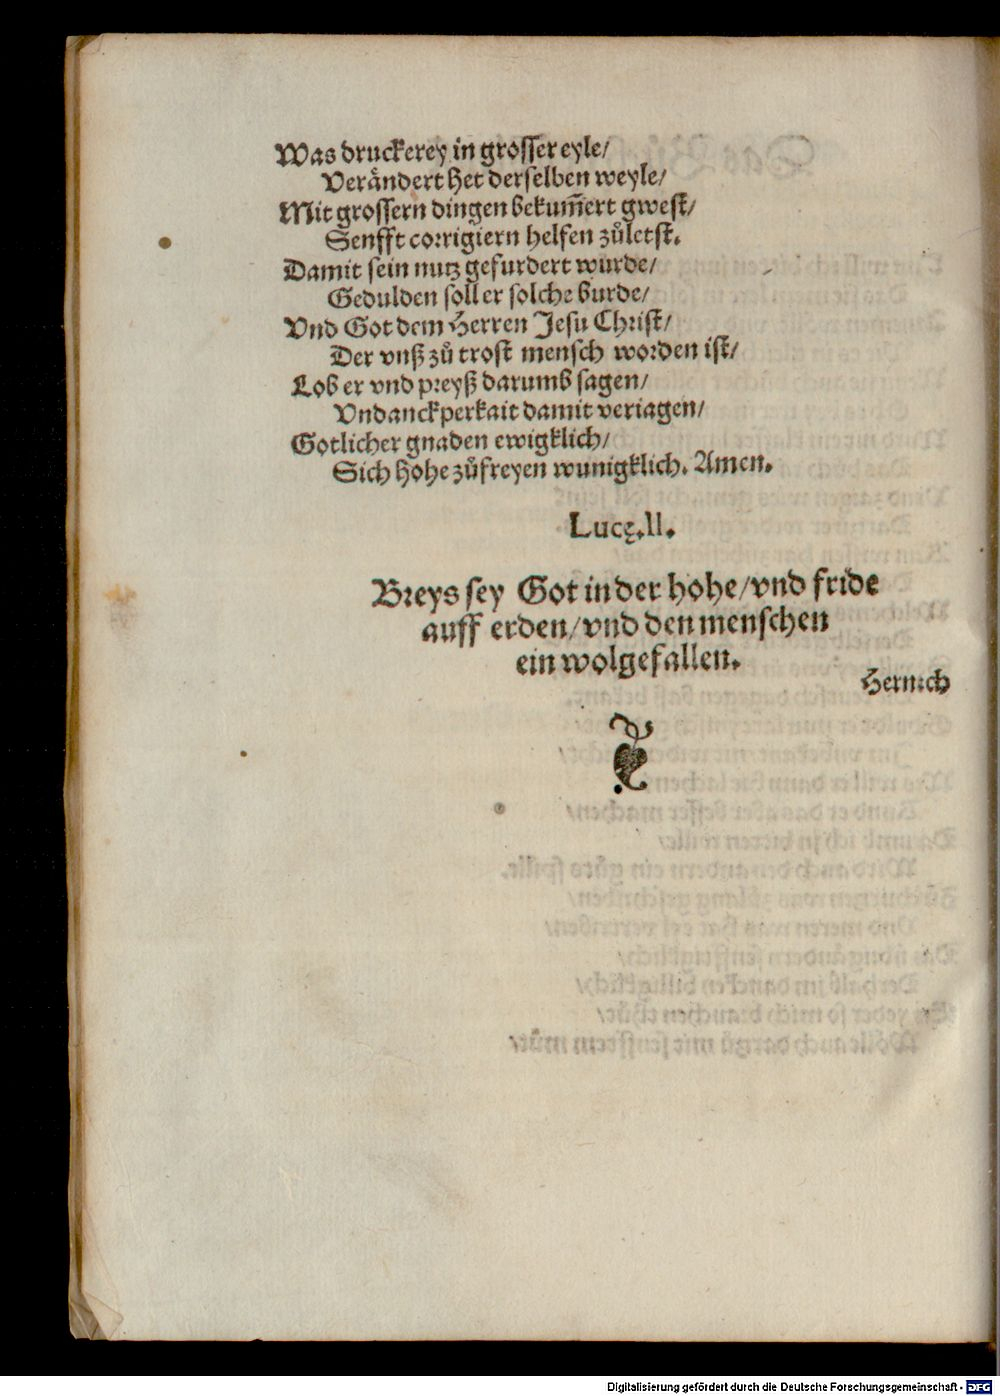 Was druckerey in grosser eyle/
Verändert het derselben weyle/
Mit grossern dingen bekum̃ert gwest/
Senfft corrigiern helfen zůletst.
Damit sein nutz gefurdert wurde/
Gedulden soll er solche burde/
Vnd Got dem Herren Jesu Christ/
Der vnß zů trost mensch worden ist/
Lob er vnd preyß darumb sagen/
Vndanckperkait damit veriagen/
Gotlicher gnaden ewigklich/
Sich hohe zůfreyen wunigklich. Amen.
Lucę.II.
Breys sey Got in der hohe/vnd fride
auff erden/vnd den menschen
ein wolgefallen.
Hernach
Digitalisierung gefördert durch die Deutsche Forschungsgemeinschaft - DFG